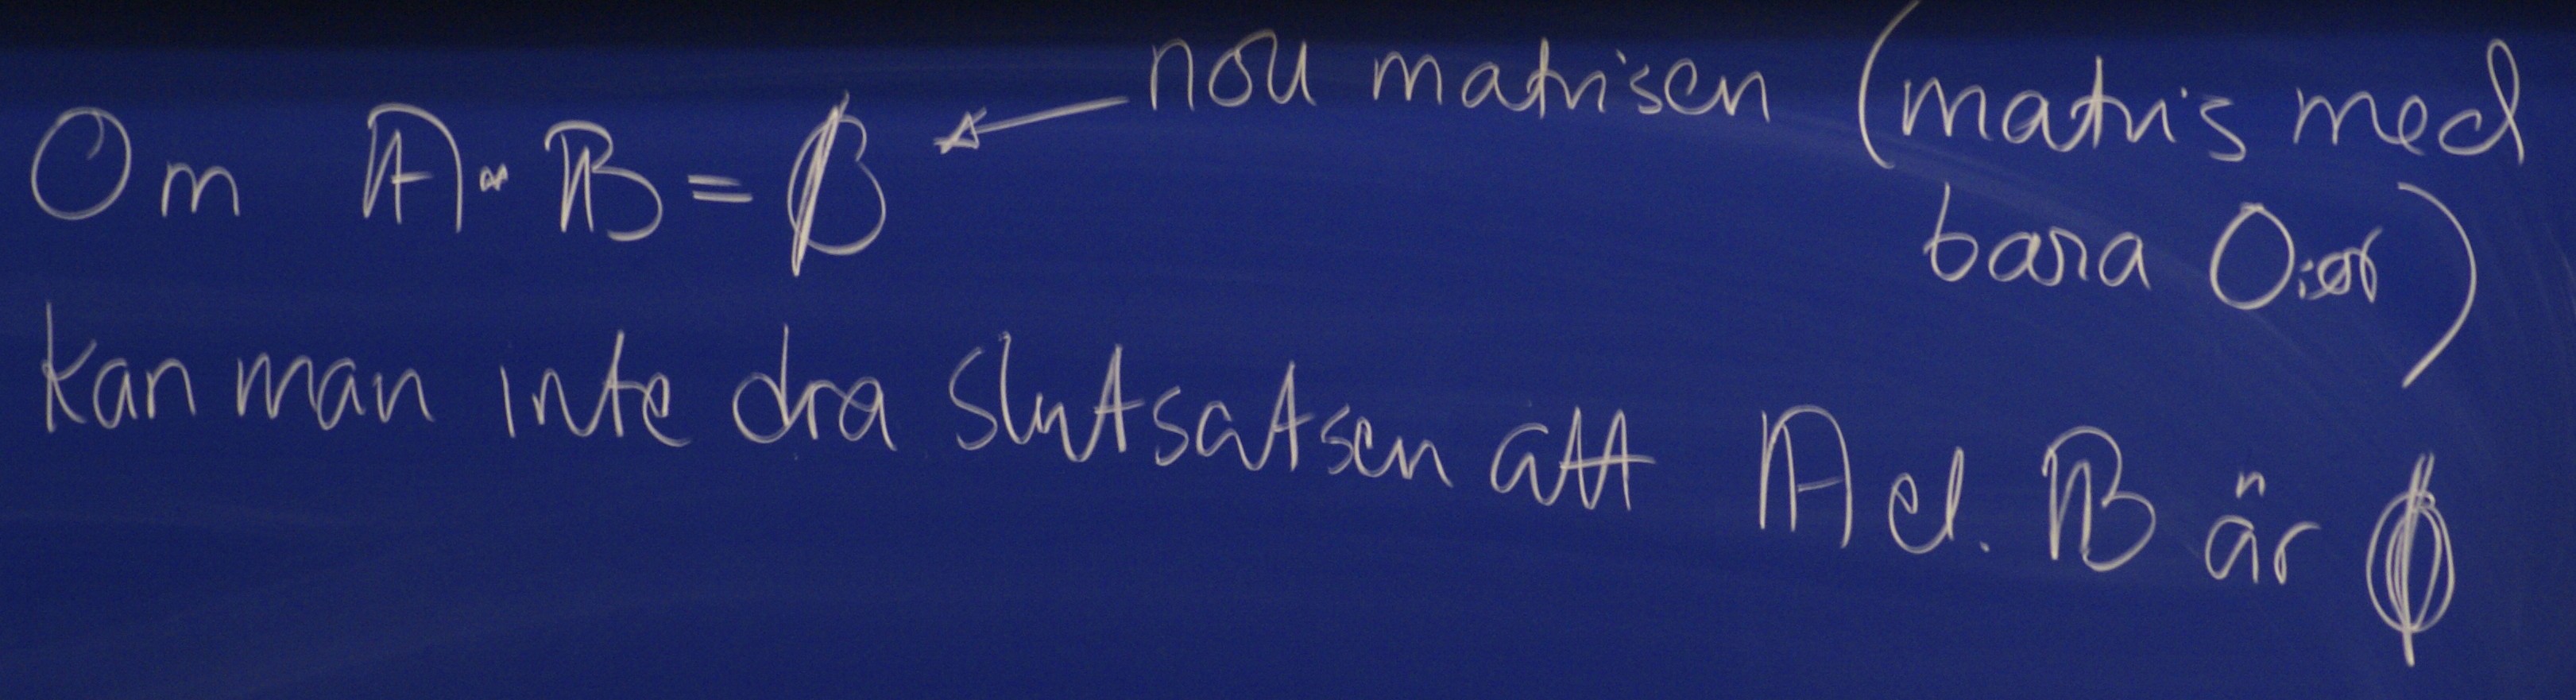 Om A · B = ∅ ← noll matrisen (matris med
bara 0:or)
kan man inte dra slutsatsen att A el. B är ∅